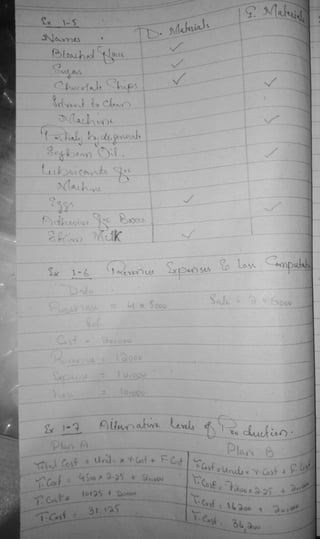 Ex 1-5
D. Materials I. Materials
Names
Bleached Flour ✓
Sugar ✓
Chocolate Chips ✓ ✓
Solvent to Clean
Machine ✓
Partially hydrogenate
Soybean Oil. ✓
Lubricants for
Machine
Eggs ✓ ✓
Adhesive for Boxes
Skim Milk ✓
Ex 1-6 Revenue Expenses & Loss Computation
Data
= 4 x 5000 Sale = 2 x 6000
Sol
Cost =
Revenue = 12000
Expense =
Loss =
Ex 1-7 Alternative levels of Production.
Plan A Plan B
Total Cost = Units x v. Cost + F. Cost T. Cost = Units x v. Cost + F. Cost
T. Cost = 4500 x 2.25 + T. Cost = 7200 x 2.25 +
T. Cost = 10125 + T. Cost = 16200 +
T. Cost = T. Cost = 36,200